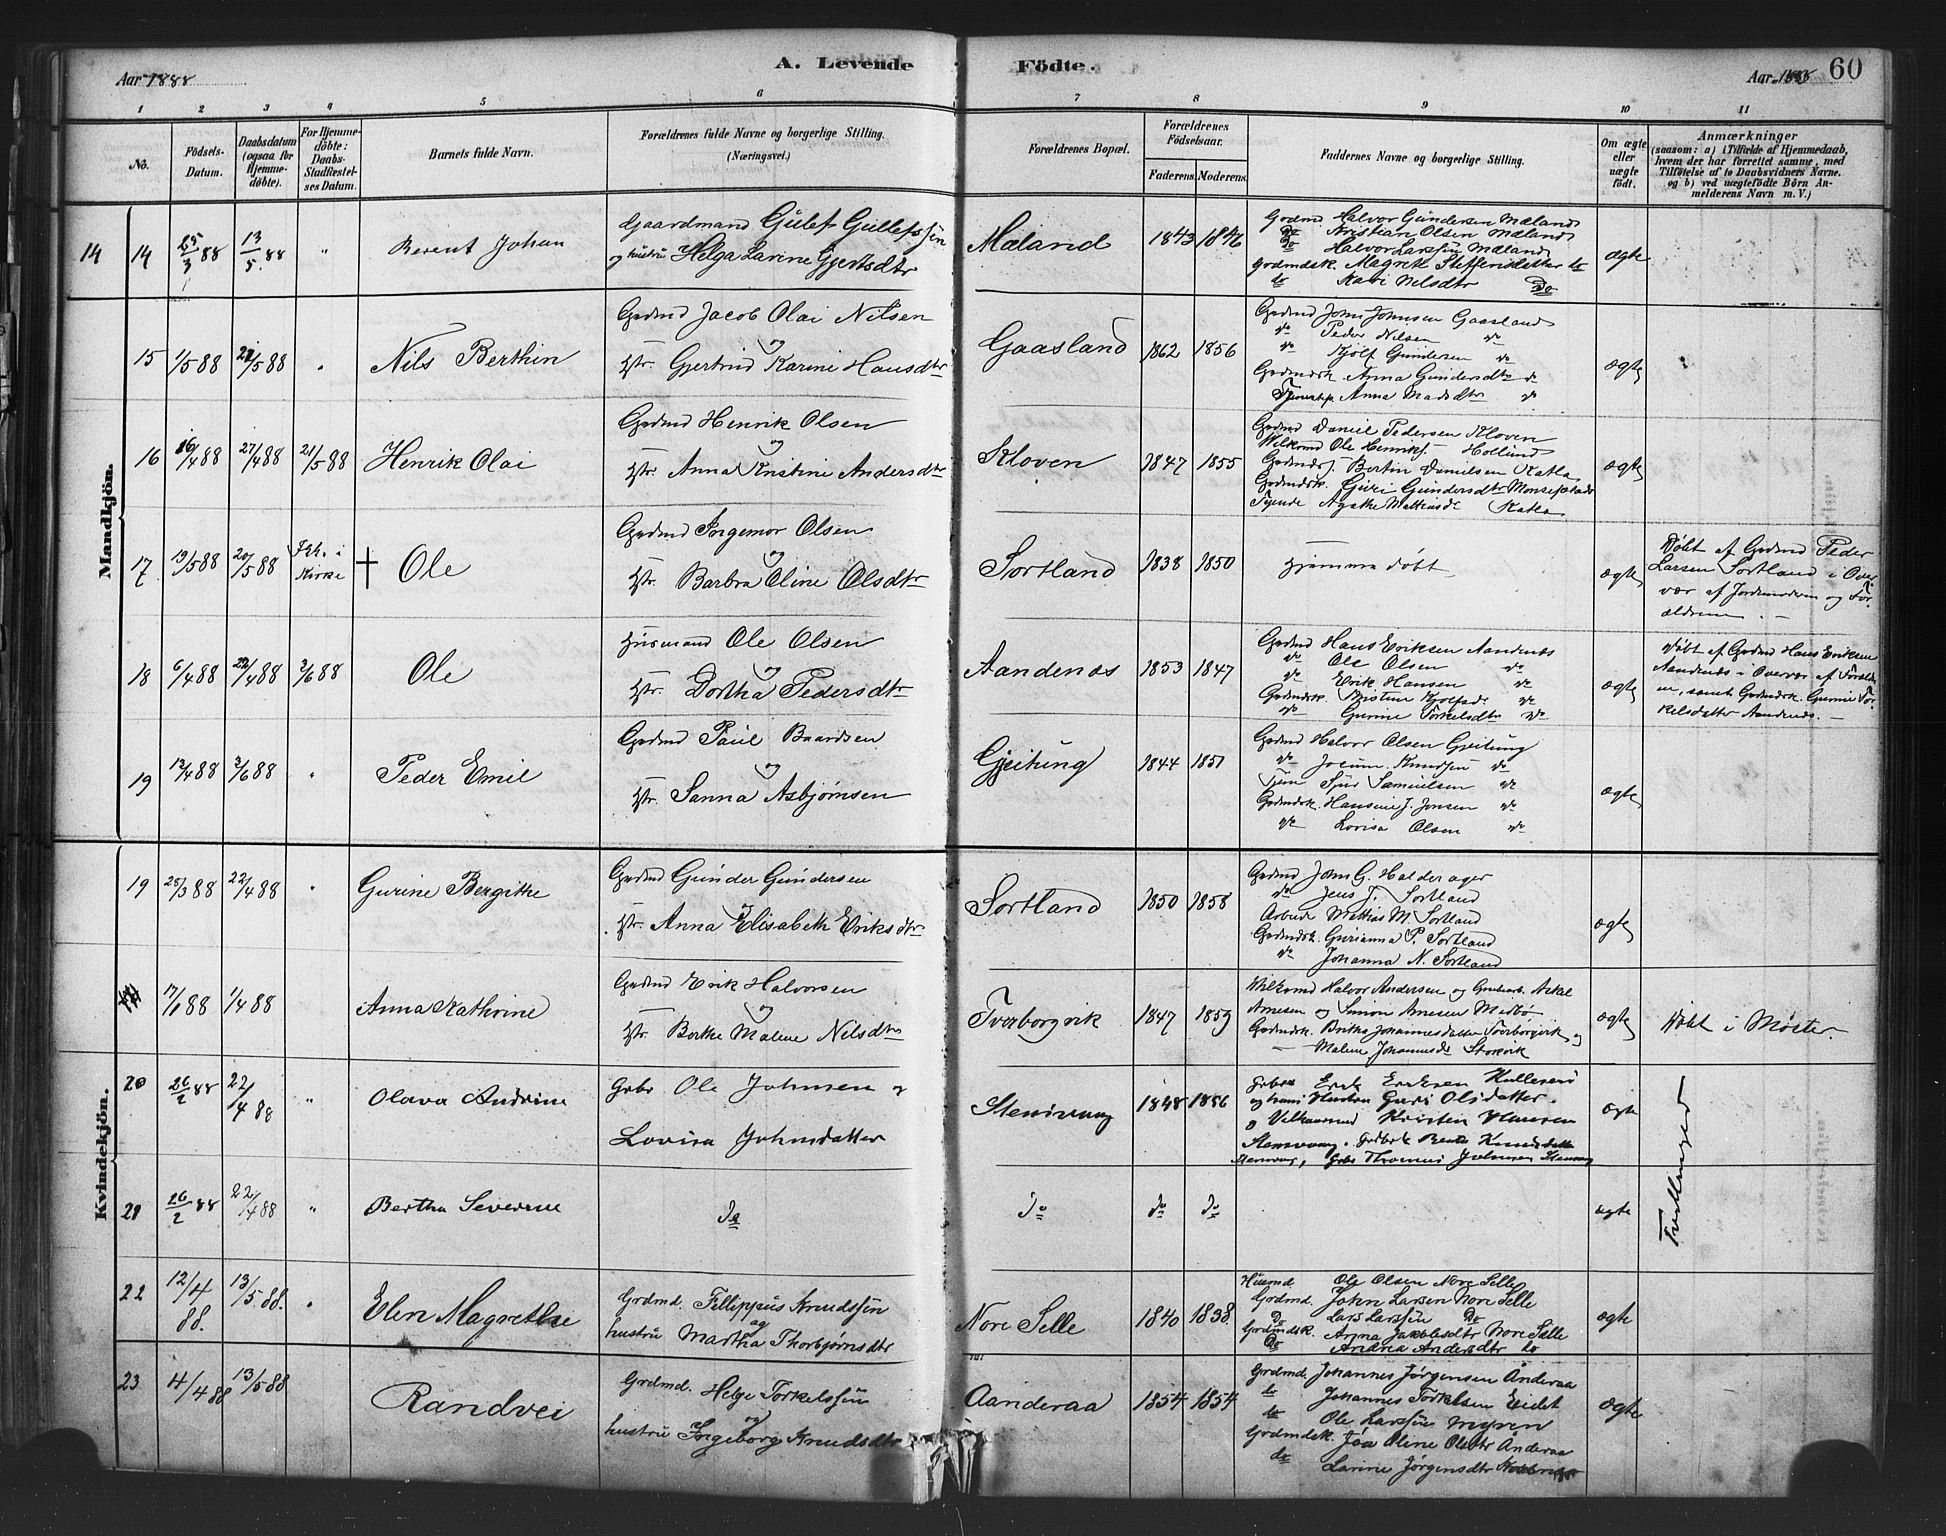 Aar 1888
A. Levende
Födte.
Aar 1888
60
1 2 3 4 5 6 7 8 9 10 11
No.
Födsels-
Datum.
Daabsdatum
(ogsaa for
Hjemme-
döbte).
For Hjemme-
döbte:
Daabs-
Stadfæstel-
ses Datum.
Barnets fulde Navn.
Forældrenes fulde Navne og borgerlige Stilling.
(Næringsvei.)
Forældrenes Bopæl.
Forældrenes
Födselsaar.
Faderens. Moderens.
Faddernes Navne og borgerlige Stilling.
Om ægte
eller
uægte
födt.
Anmærkninger
(saasom: a) i Tilfælde af Hjemmedaab,
hvem der har forrettet samme, med
Tilföielse af to Daabsvidners Navne.
og b) ved uægtefödte Börn An-
melderens Navn m. V.)
Mandkjön.
14 14 25/3 88 13/5 88 " Berent Johan
Gaardmand Gulef Gullefssøn
og hustru Helga Larine Gjertsdtr
Mæland 1843 1846
Grdmd Halvor Gundersen Mæland
Do Kristian Olsen Mæland
Do Halvor Larssøn Mæland
Grdmdsk. Magrete Steffensdatter do
do Kari Nelsdtr Do
ægte
15 1/5 88 21/5 88 " Nils Berthin
Grdmd Jacob Olai Nilsen
og
Hstr. Gjertrud Karine Hansdtr
Gaasland 1862 1856
Grdmd John Johnsen Gaasland
do Peder Nilsen do
do Kjölf Gundersen do
Grdmdsk Anna Gundersdtr do
Anna Madsdtr do
ægte
16 16/4 88 27/4 88 21/5 88 Henrik Olai
Grdmd Henrik Olsen
og
Hstr. Anna Kristine Andersdtr
Kloven 1847 1855
Grdmd Daniel Pedersen Kloven
Ole Henriks. Hollund
Bertin Danielsen Katla
Grdmdsk. Guri Gundersdtr
Tjende Agathe Katla
ægte
17 19/5 88 20/5 88 i Kirke † Ole
Grdmd Ingemor Olsen
og
Hstr. Barbra Oline Olsdtr
Sortland 1838 1850
Hjemmedöbt
ægte
Döbt af Grdmd Peder
Larsen Sortland i Over
vær af Jordmoderen og For
ældrene. -
18 6/4 88 22/4 88 3/6 88 Ole
Husmand Ole Olsen
og
Hstr. Dortha Pedersdtr
Aandenæs 1853 1847
Grdmd Hans Eriksen Aandenæs
do Ole Olsen do
do Erik Hansen do
Grdmdsk. Kristine do
do Gurine Torkelsdtr do
ægte
Döbt af Grdmd Hans Eriksen
Aandenæs i Overvær af Foræld
ne, samt Grdmdsk. Gurine Tor
kelsdatter Aandenæs. -
19 13/4 88 3/6 88 " Peder Emil
Grdmd Paul Baardsen
og
Hstr. Sanna Asbjørnsen
Gjeitung 1844 1851
Grdmd Halvor Olsen Gjeitung
do Jocum Knudsen do
Tjen Sjur Samuelsen do
Grdmdsk. Hansine J. Jonsen do
do Lovisa Olsen do
ægte
Kvindekjön.
19 25/3 88 22/4 88 " Gurine Bergithe
Grdmd Gunder Gundersen
og
Hstr. Anna Elisabeth Eriksdtr
Sortland 1850 1858
Grdmd John G. Halderager
do Jens J. Sortland
Mathias M. Sortland
Grdmdsk. Gurianna P. Sortland
do Johanna N. Sortland
ægte
88 1/4 88 Anna Kathrine
Grdmd Erik Halvorsen
og
Hstr. Berthe Malene Nilsdtr
Tverborgvik 1847 1859
Halvor Andersen og Askel
Arnesen og Simon Arnesen Medbö
Grdmdsk. Britha Johannesdatter Tverborgvik og
- Malene Stokvik
ægte
Döbt i Møster.
20 26/2 88 22/4 88 " Olava Andrine
Grbr Ole Johnsen og
Lovisa Johnsdatter
Stensvaag 1848 1886
Erik Eriksen Kulleseid
og hans Hustru Guri Olsdatter.
Kristen Hansen
Stensvaag.
Thomas Johnsen
ægte
Tvillinger
21 26/2 88 22/4 88 " Bertha Severine
do
do do do
ægte
22 12/4 88. 13/5 88. " Elen Magrethe
Grdmd. Fillippus Knudssøn
og
hustru Martha Thorbjørnsdtr
Nore Selle 1840 1838.
Husmd. Ole Olsen Nore Selle
Grdmd. John Larsen Nore Selle
Do Lars Larssøn Do
Grdmdsk. Anna Jakobsdtr Nore Selle
Do Andrea Andersdtr do
ægte
23 4/4 88 13/5 88 Randvei
Grdmd. Helge Torkelssøn
og
hustru Ingeborg Knudsdtr
Aanderaa 1854 1854
Grdmd. Johannes Jørgensen Anderaa
do Johannes Torkelsen Eidet
do Ole Larssøn Myren
Grdmdsk. Joa Oline Olsdtr Anderaa
do Larine Jørgensdtr
ægte